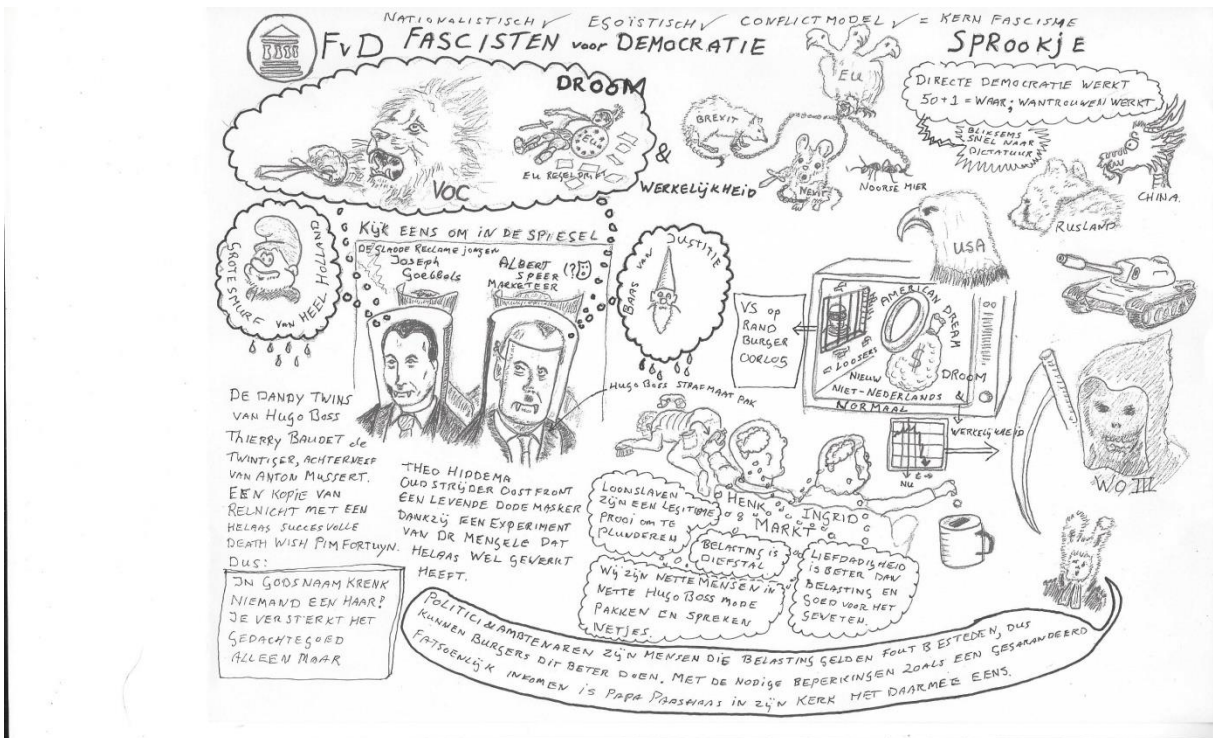 NATIONALISTISCH ✓ EGOÏSTISCH ✓ CONFLICTMODEL ✓ = KERN FASCISME
FvD FASCISTEN voor DEMOCRATIE
SPROOKJE
DROOM
EU
VOC
EU REGELDRIFT
&
WERKELIJKHEID
BREXIT
EU
NEXIT
NOORSE MIER
DIRECTE DEMOCRATIE WERKT
50+1 = WAAR; WANTROUWEN WERKT
BLIKSEMS
SNEL NAAR
DICTATUUR
CHINA.
RUSLAND
USA
GROTE SMURF VAN HEEL HOLLAND
KIJK EENS OM IN DE SPIEGEL
DE GLADDE RECLAME JONGEN
JOSEPH
GOEBBELS
ALBERT
SPEER (?)
MARKETEER
BAAS VAN JUSTITIE
VS OP
RAND
BURGER
OORLOG
AMERICAN DREAM
LOOSERS
$
DROOM
NIEUW
NIET-NEDERLANDS &
NORMAAL
WERKELIJKHEID
NU
t →
WO III
HUGO BOSS STRAFMAAT PAK
DE DANDY TWINS
VAN HUGO BOSS
THIERRY BAUDET de
TWINTIGER, ACHTERNEEF
VAN ANTON MUSSERT.
EEN KOPIE VAN
RELNICHT MET EEN
HELAAS SUCCESVOLLE
DEATH WISH PIM FORTUYN.
DUS:
IN GODSNAAM KRENK
NIEMAND EEN HAAR!
JE VERSTERKT HET
GEDACHTEGOED
ALLEEN MAAR
THEO HIDDEMA
OUD STRIJDER OOSTFRONT
EEN LEVENDE DODE MASKER
DANKZIJ EEN EXPERIMENT
VAN DR MENGELE DAT
HELAAS WEL GEWERKT
HEEFT.
HENK & INGRID
MARKT
LOONSLAVEN
ZIJN EEN LEGITIEME
PROOI OM TE
PLUNDEREN
BELASTING IS
DIEFSTAL
WIJ ZIJN NETTE MENSEN IN
NETTE HUGO BOSS MODE
PAKKEN EN SPREKEN
NETJES.
LIEFDADIGHEID
IS BETER DAN
BELASTING EN
GOED VOOR HET
GEWETEN.
POLITICI & AMBTENAREN ZIJN MENSEN DIE BELASTING GELDEN FOUT BESTEDEN, DUS
KUNNEN BURGERS DIT BETER DOEN. MET DE NODIGE BEPERKINGEN ZOALS EEN GEGARANDEERD
FATSOENLIJK INKOMEN IS PAPA PAASHAAS IN ZIJN KERK HET DAARMEE EENS.